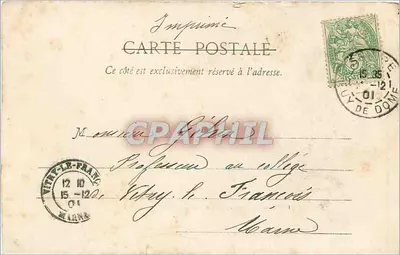 Imprimé
CARTE POSTALE
Ce côté est exclusivement réservé à l'adresse.
15 35
-12
01
PUY DE DOME
Monsieur
CPAPHIL
Professeur au collège
VITRY-LE-FRANC
12 10
15 -12
01
MARNE
de Vitry-le-François
Marne